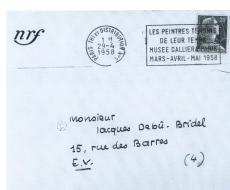 nrf
PARIS TRI et DISTRIBUTION N°1
1 H
29-4
1958
LES PEINTRES TEMOINS
DE LEUR TEMPS
MUSEE GALLIERA PARIS
MARS-AVRIL-MAI 1958
Monsieur
Jacques Debû-Bridel
15, rue des Barres
E.V. (4)